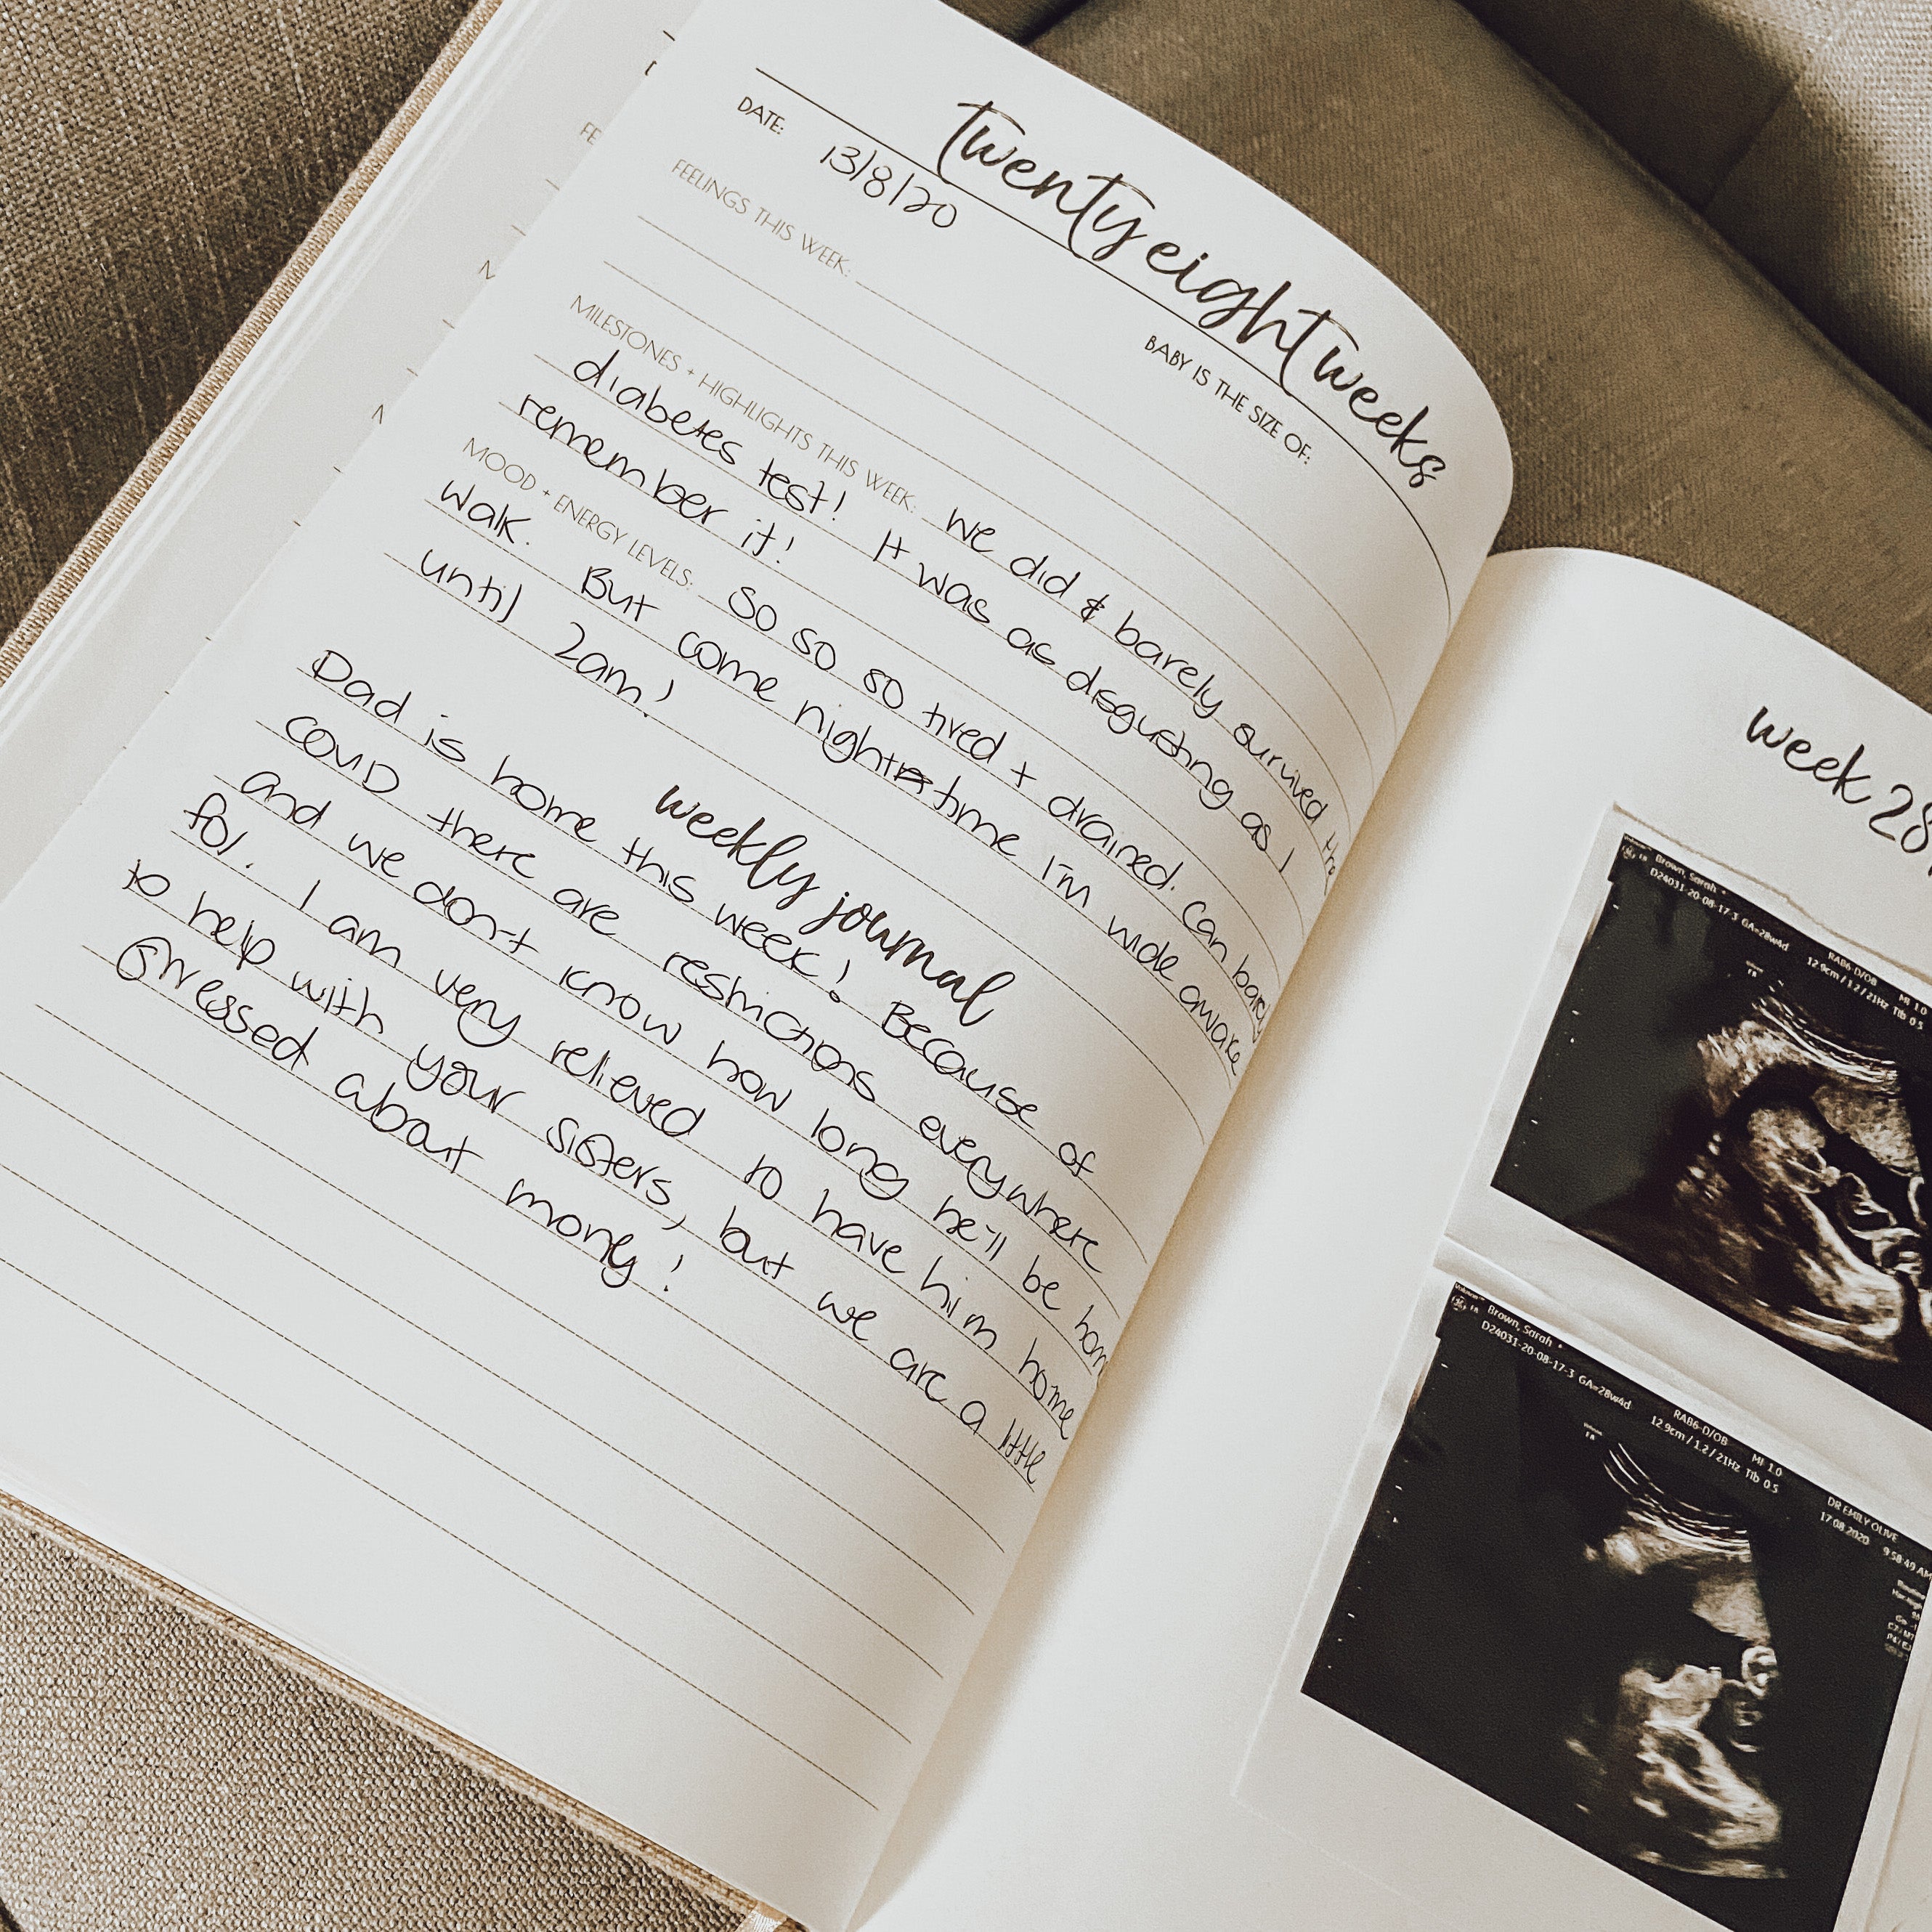 twenty eight weeks
DATE: 13/8/20
BABY IS THE SIZE OF:
FEELINGS THIS WEEK:
MILESTONES + HIGHLIGHTS THIS WEEK: We did & barely survived the
diabetes test! It was as disgusting as I
remember it!
MOOD + ENERGY LEVELS: So so so tired + drained. Can barely
walk. But come night time I'm wide awake
until 2am!
weekly journal
Dad is home this week! Because of
COVID there are restrictions everywhere
and we don't know how long he'll be hom
for. I am very relieved to have him home
to help with your sisters, but we are a little
stressed about money!
week 28
Brown, Sarah
D24031-20-08-17-3 GA=28w4d
RAB6-D/OB
12.9cm / 1.2 / 21Hz
MI 1.0
TIb 0.5
Brown, Sarah
D24031-20-08-17-3 GA=28w4d
RAB6-D/OB
12.9cm / 1.2 / 21Hz
MI 1.0
TIb 0.5
DR EMILY OLIVE
17.08.2020 9:58:49 AM